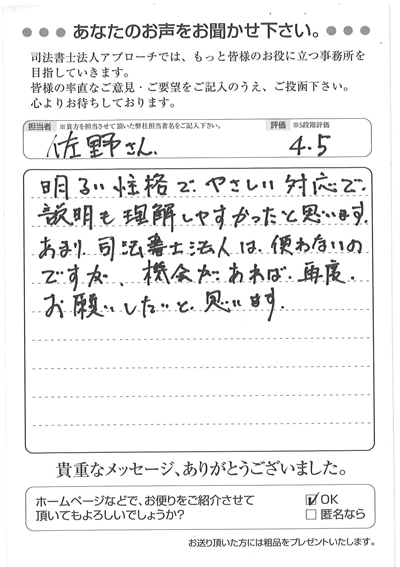 ●●●●あなたのお声をお聞かせ下さい。●●●●
司法書士法人アプローチでは、もっと皆様のお役に立つ事務所を
目指していきます。
皆様の率直なご意見・ご要望をご記入のうえ、ご投函下さい。
心よりお待ちしております。
担当者 ※貴方を担当させて頂いた弊社担当者名をご記入下さい。 評価 ※5段階評価
佐野さん 4.5
明るい性格で、やさしい対応で、
説明も理解しやすかったと思います。
あまり、司法書士法人は、使わないの
ですが、機会があれば、再度、
お願いしたいと思います。
貴重なメッセージ、ありがとうございました。
ホームページなどで、お便りをご紹介させて
頂いてもよろしいでしょうか?
☑OK
□匿名なら
お送り頂いた方には粗品をプレゼントいたします。